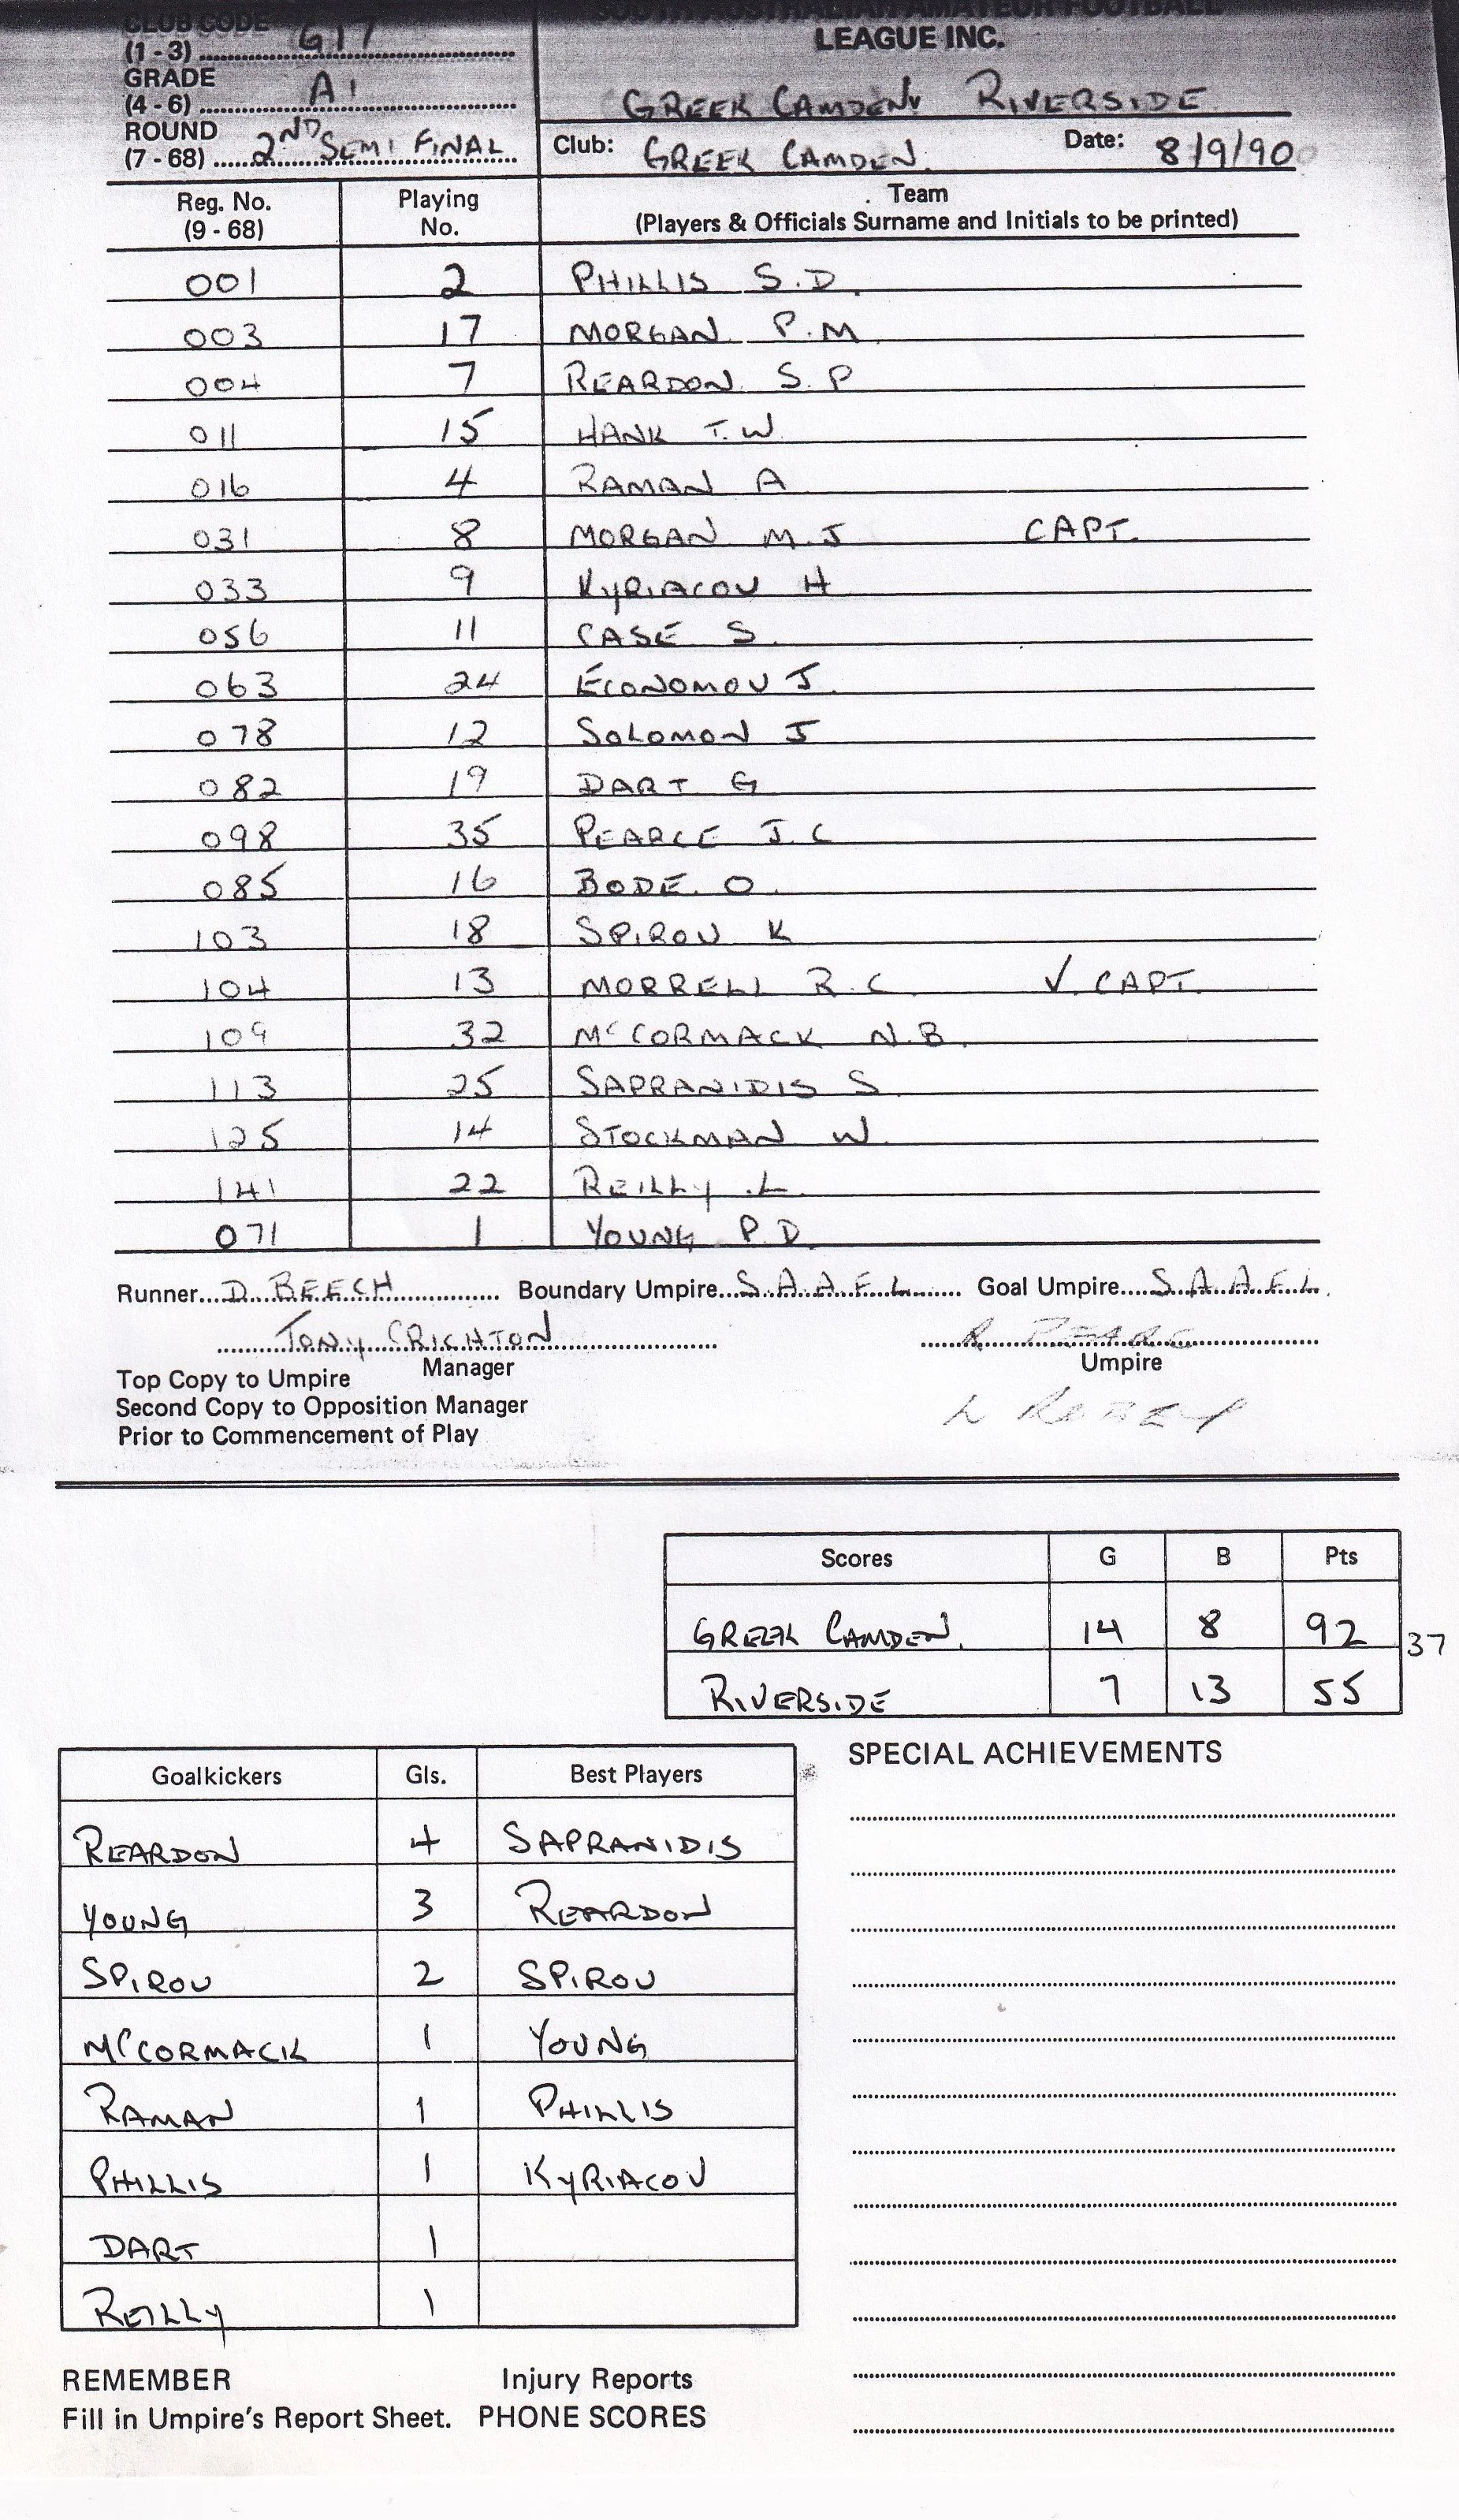 CLUB CODE
(1 - 3) G17
GRADE
(4 - 6) A1
ROUND
(7 - 68) 2ND SEMI FINAL
SOUTH AUSTRALIAN AMATEUR FOOTBALL
LEAGUE INC.
GREEK CAMDEN v RIVERSIDE
Club: GREEK CAMDEN Date: 8/9/90
Reg. No. (9 - 68) Playing No. Team (Players & Officials Surname and Initials to be printed)
001 2 PHILLIS S.D.
003 17 MORGAN P.M
004 7 REARDON S.P
011 15 HANK T.W
016 4 RAMAN A
031 8 MORGAN M.J CAPT.
033 9 KYRIACOU H
056 11 CASE S.
063 24 ECONOMOU J.
078 12 SOLOMON J
082 19 DART G
098 35 PEARCE J.C
085 16 BODE O.
103 18 SPIROU K
104 13 MORRELL R.C. V. CAPT.
109 32 McCORMACK N.B.
113 25 SAPRANIDIS S
125 14 STOCKMAN W.
141 22 REILLY L.
071 1 YOUNG P.D.
Runner D. BEECH Boundary Umpire S.A.A.F.L. Goal Umpire S.A.A.F.L.
TONY CRICHTON
Manager Umpire
Top Copy to Umpire
Second Copy to Opposition Manager
Prior to Commencement of Play
Scores G B Pts
GREEK CAMDEN. 14 8 92 37
RIVERSIDE 7 13 55
Goalkickers Gls. Best Players
REARDON 4 SAPRANIDIS
YOUNG 3 REARDON
SPIROU 2 SPIROU
McCORMACK 1 YOUNG
RAMAN 1 PHILLIS
PHILLIS 1 KYRIACOU
DART 1
REILLY 1
SPECIAL ACHIEVEMENTS
REMEMBER Injury Reports
Fill in Umpire's Report Sheet. PHONE SCORES